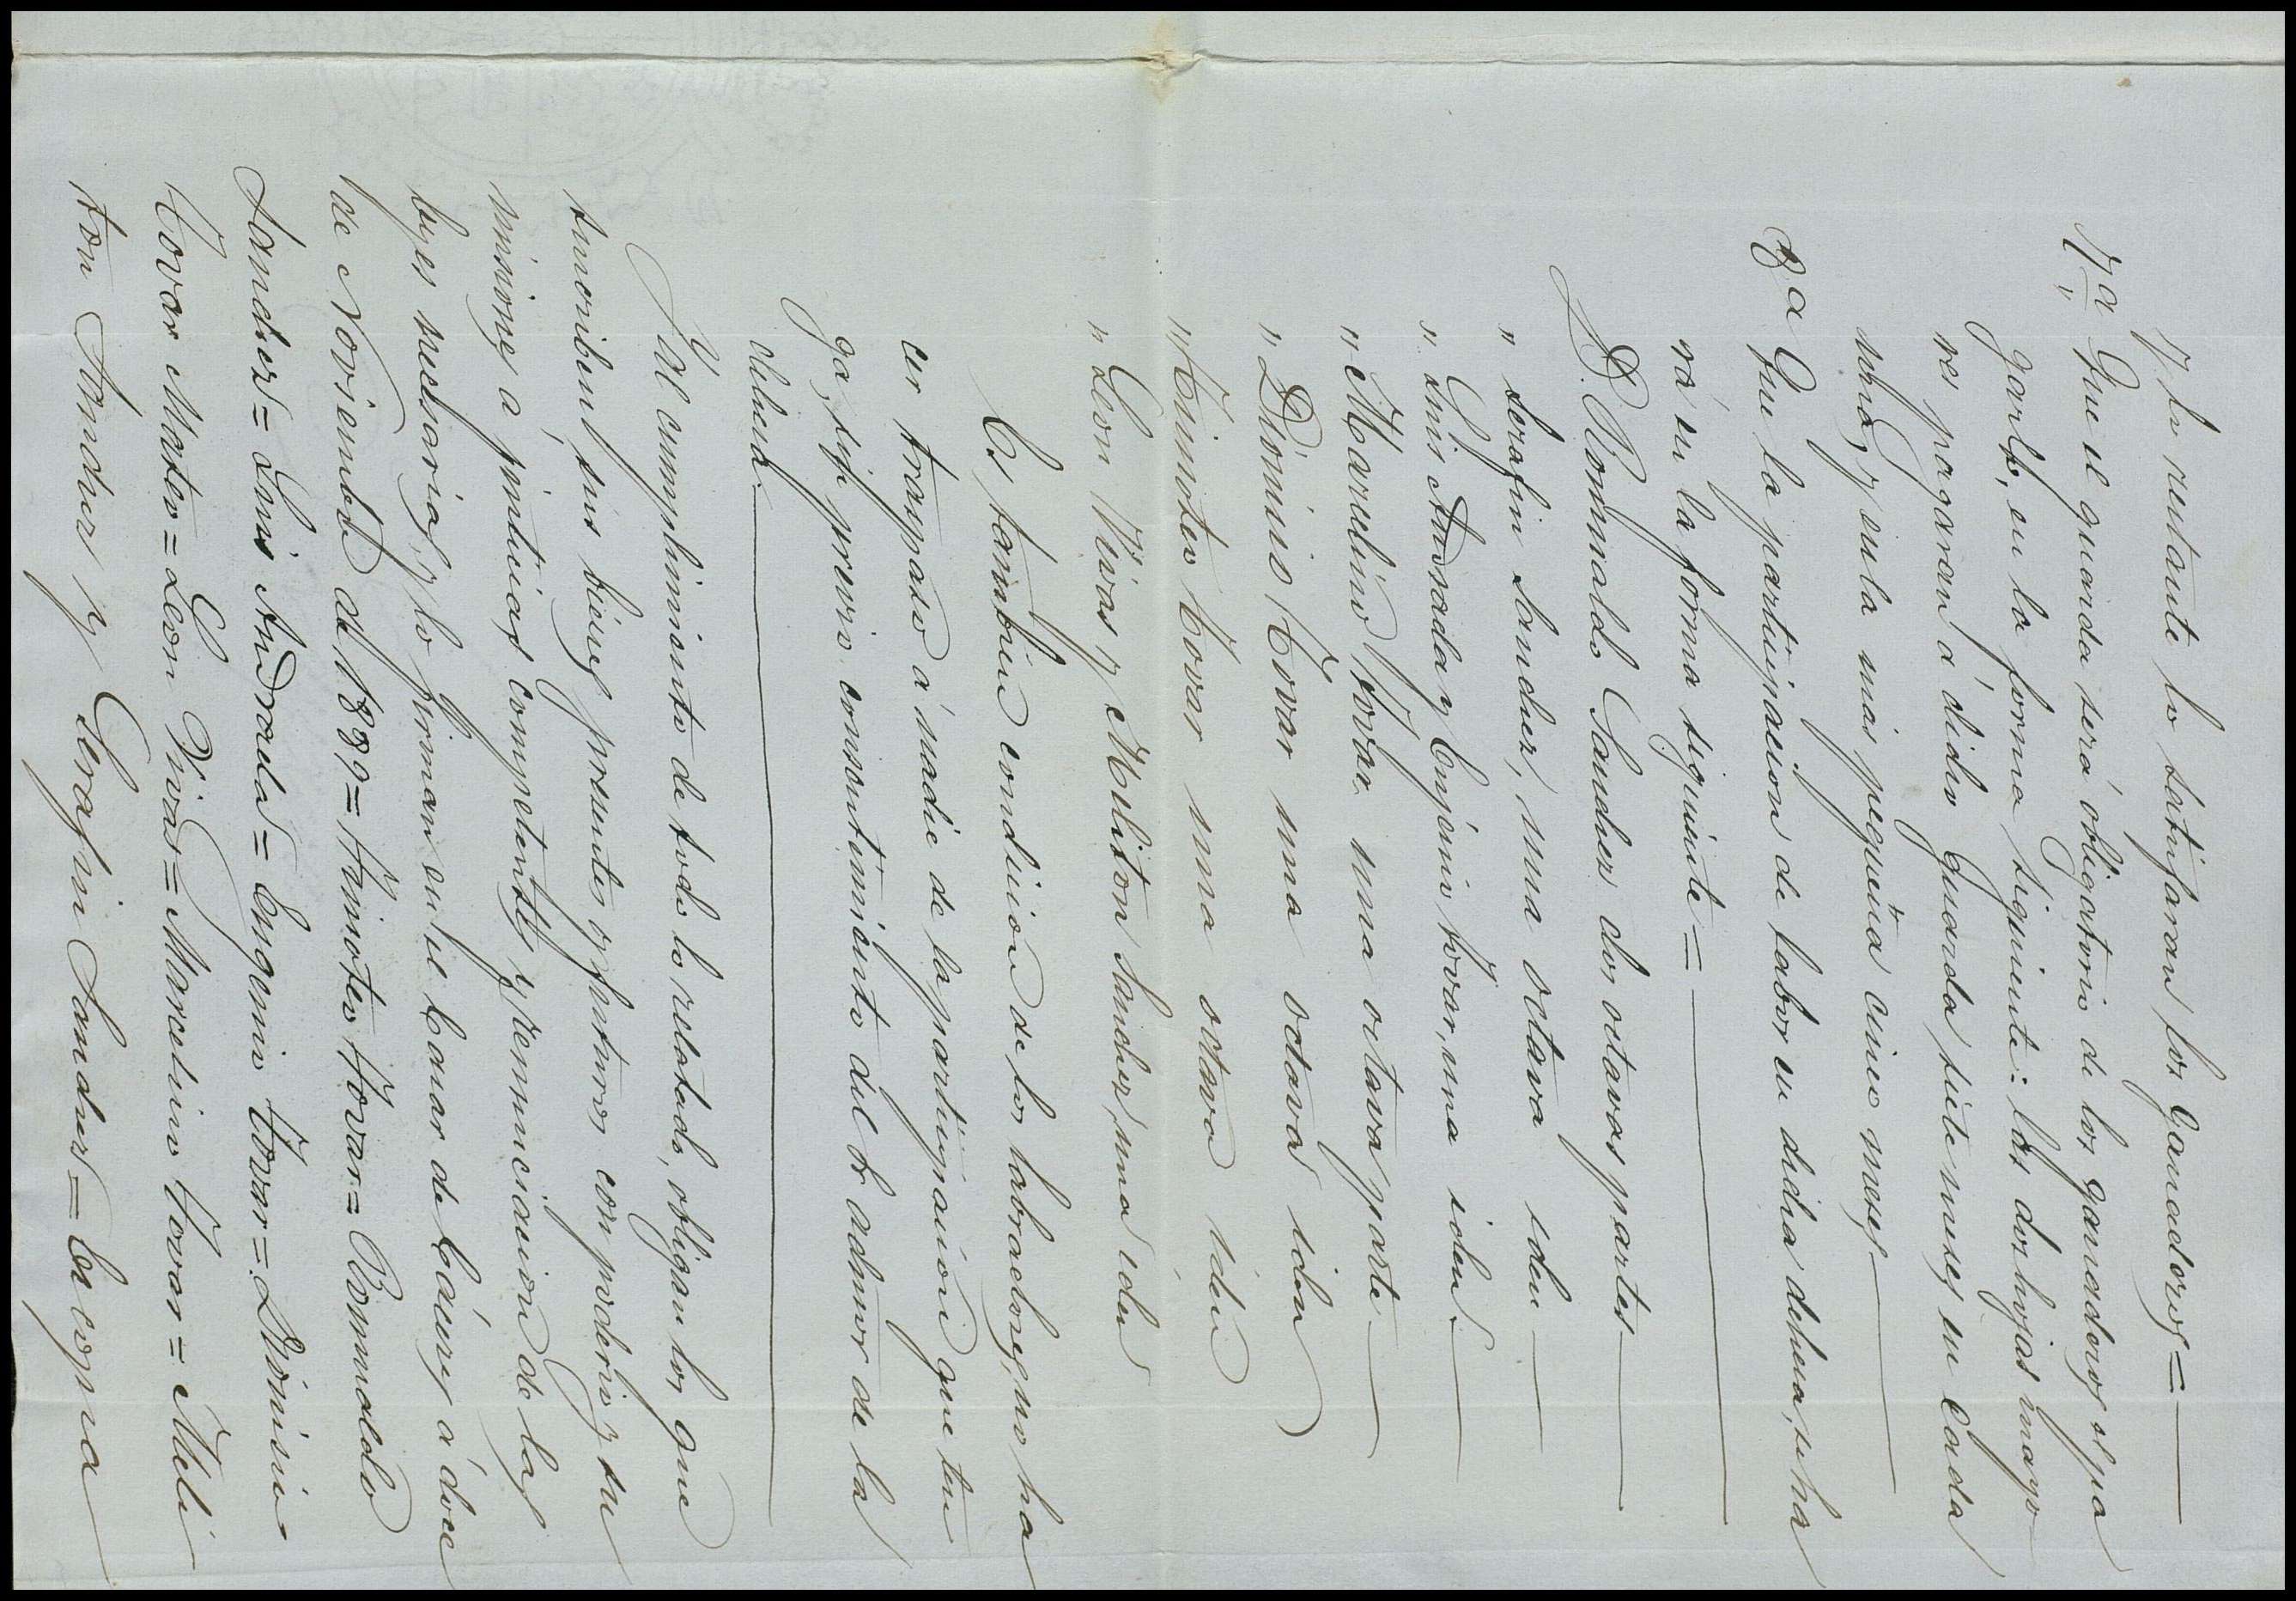 y lo restante lo satisfaran los Ganadores=
7.a Que el guarda será óbligatorio de los ganaderos el pa
garle, en la forma siguiente: los dos hojas mayo
res pagaran á dicho Guarda siete meses en cada
una, y en la mas pequeña cinco meses
8.a Que la participacion de labor en dicha dehesa, se ha
rá en la forma siguiente=
D. Romualdo Sanchez dos octavas partes
" Serafin Sanchez, una octava iden
" Luis Andrada y Enjenio tovar, una iden.
" Marcelino tovar una octava parte
" Dionisio tovar una octava iden
" timoteo tovar una octava iden
" Leon Vivas y Meliton Sanchez, una iden
Es tambien condicion de los labradores, no ha
cer traspaso á nadie de la participacion que ten
ga, sin previo consentimiento del Sr admor de la
dehesa.
Al cumplimiento de todo lo relatado, obligan los que
suscriben sus bienes presentes y futuros con poderio y su
misiones á justicias competentes y renunciacion de las
leyes necesarias, y lo firman en el Casar de Cáceres á doce
de Noviembre de 1889= timoteo tovar= Romualdo
Sanchez= Luis Andrada= Eugenio tovar= Dionisio
tovar Mateo= Leon Vivas= Marcelino tovar= Meli
ton Sanchez y Serafin Sanchez= Es copia